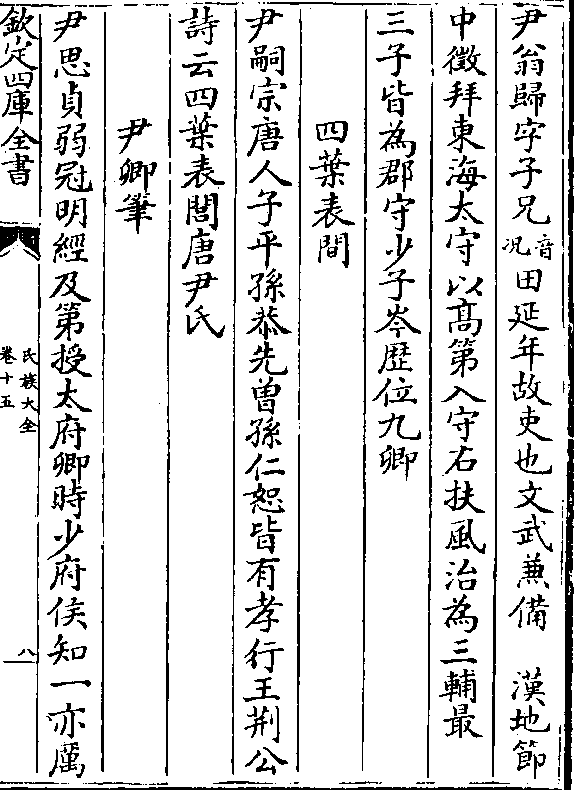 尹翁歸字子兄音况田延年故吏也文武兼備　漢地節
中徵拜東海太守以髙第入守右扶風治為三輔最
三子皆為郡守少子岑歴位九卿
四葉表閭
尹嗣宗唐人子平孫恭先曽孫仁恕皆有孝行王荆公
詩云四葉表閭唐尹氏
尹卿筆
尹思貞弱冠明經及第授太府卿時少府侯知一亦厲
欽定四庫全書
氏族大全
卷十五
八